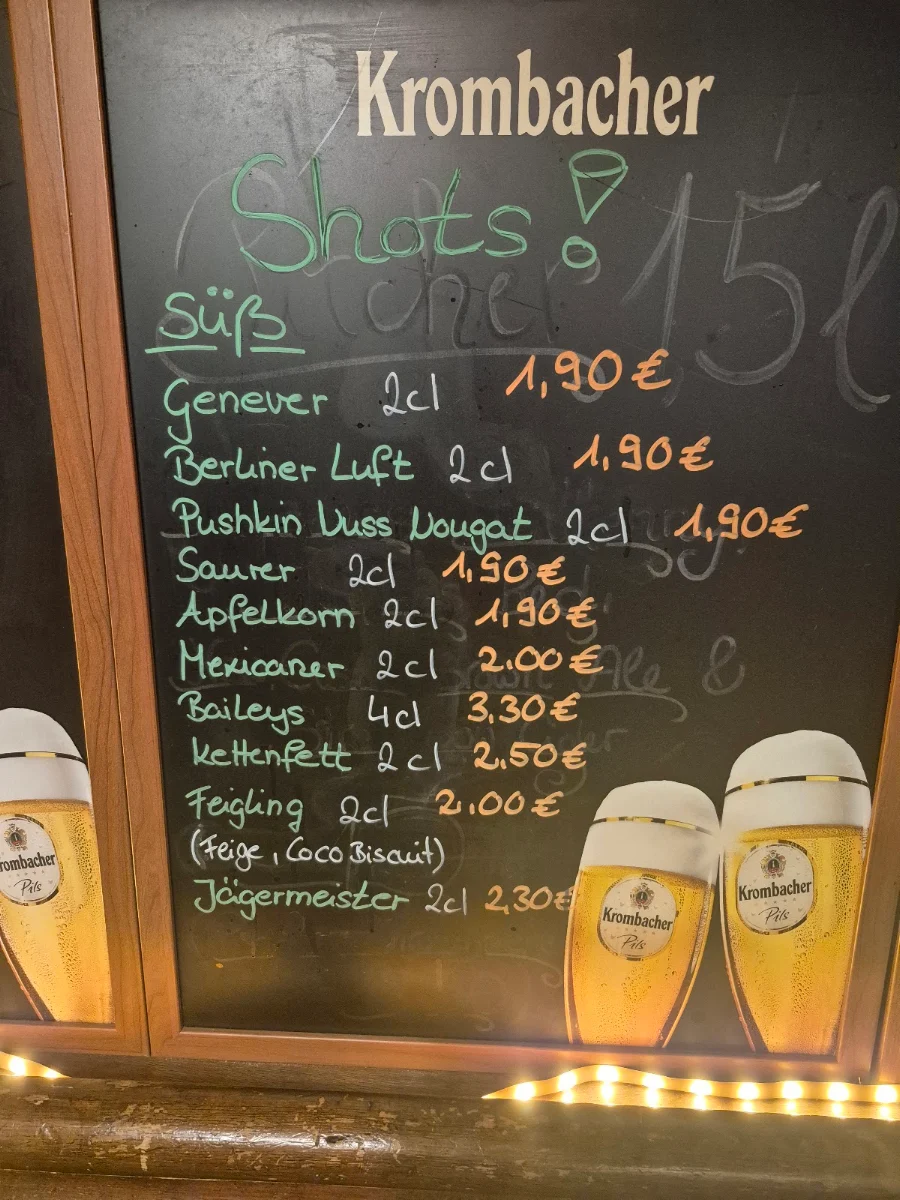 Krombacher
Shots!
Süß
Genever 2cl 1,90 €
Berliner Luft 2cl 1,90 €
Pushkin Nuss Nougat 2cl 1,90 €
Saurer 2cl 1,90 €
Apfelkorn 2cl 1,90 €
Mexicaner 2cl 2.00 €
Baileys 4cl 3,30 €
Kettenfett 2cl 2,50 €
Feigling 2cl 2,00 €
(Feige, Coco Biscuit)
Jägermeister 2cl 2,30 €
15l
Ale &
rombacher
Pils
Krombacher
Pils
Krombacher
Pils